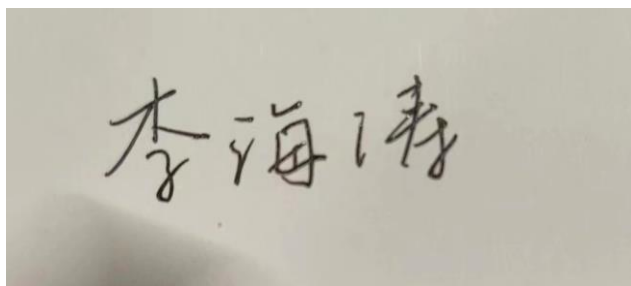 李海涛